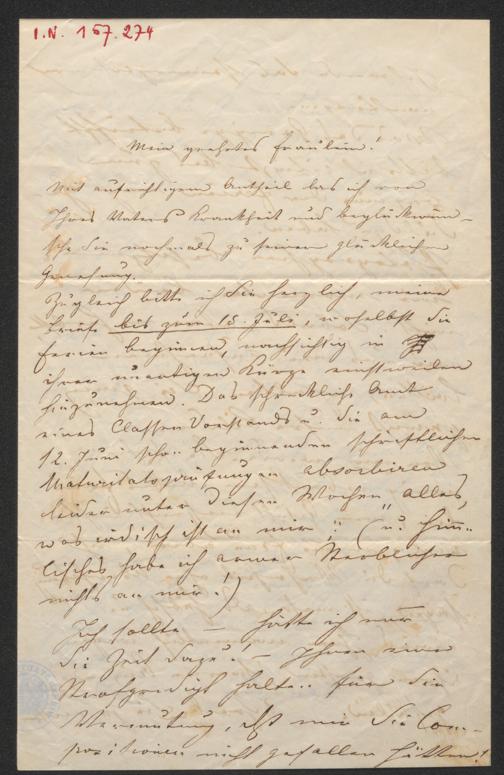 I.N. 157.274
Mein geehrtes Fräulein!
Mit aufrichtigem Antheil las ich von
Ihres Vaters Krankheit und beglückwün-
sche Sie nochmals zu seiner glücklichen
Genesung.
Zugleich bitte ich Sie herzlich, meine
Briefe bis zum 15. Juli, woselbst die
Ferien beginnen, nachsichtig in
ihrer unartigen Kürze einstweilen
hinzunehmen. Das schreckliche Amt
eines Classenvorstands u. die am
12. Juni schon beginnenden schriftlichen
Maturitätsprüfungen absorbiren
leider unter diesen Wochen "alles,
was irdisch ist an mir" (u. himm-
lisches habe ich armer Sterblicher
nichts an mir!)
Ich sollte – hätte ich nur
die Zeit dazu! – Ihnen eine
Strafpredigt halten für die
Vermutung, als mir die Com-
positionen nicht gefallen hätten!